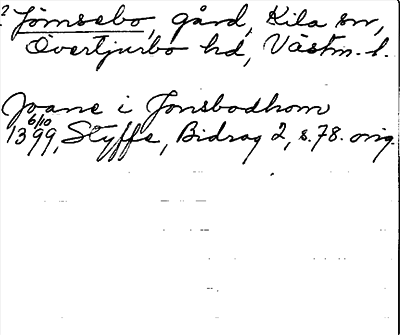 2 Jömsebo, gård, Kila sn,
Övertjurbo hd, Västm. l.
Joane i Jonsbodhom
1399 6/10, Styffe, Bidrag 2, s. 78. orig.